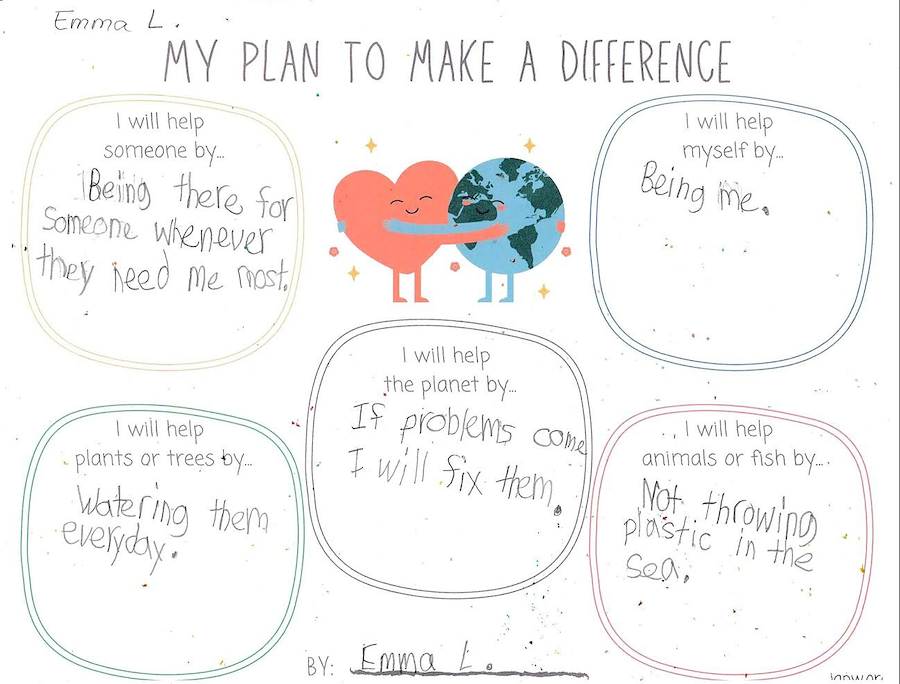 Emma L.
MY PLAN TO MAKE A DIFFERENCE
I will help
someone by...
Being there for
someone whenever
they need me most.
I will help
myself by...
Being me.
I will help
the planet by...
If problems come
I will fix them.
I will help
plants or trees by...
Watering them
everyday.
I will help
animals or fish by...
Not throwing
plastic in the
sea.
BY: Emma L.